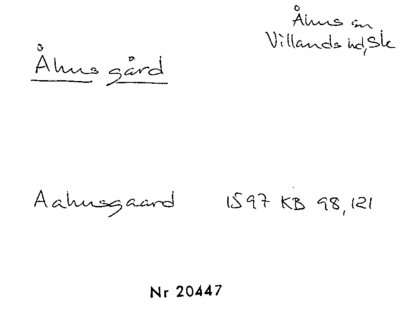 Åhus sn
Villands hd, Sk
Åhus gård
Aahusgaard 1597 KB 98, 121
Nr 20447